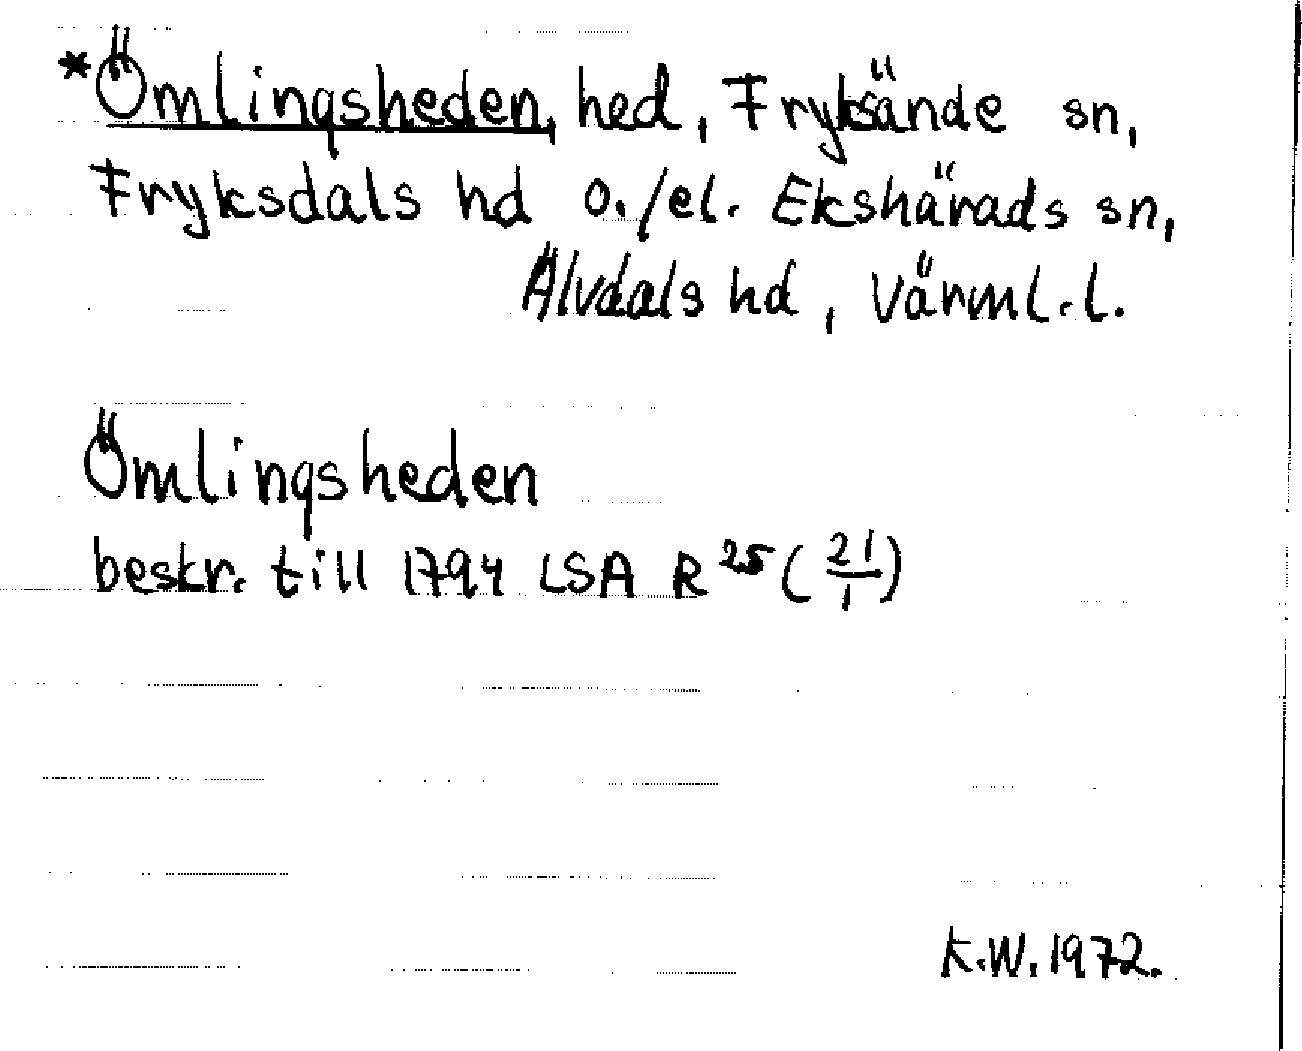 *Ömlingsheden, hed, Fryksände sn,
Fryksdals hd o./el. Ekshärads sn,
Älvdals hd, Värml. l.
Ömlingsheden
beskr. till 1794 LSA R 25 (21/1)
K.W. 1972.